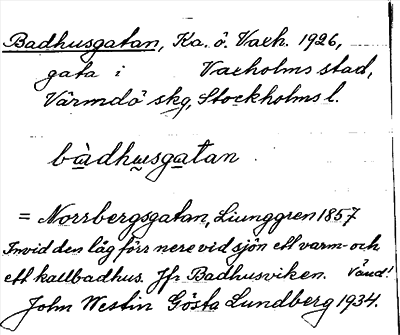 Badhusgatan, Ka. ö. Vaxh. 1926,
gata i Vaxholms stad,
Värmdö skg, Stockholms l.
bàdhusgatan
= Norrbergsgatan, Ljunggren 1857
Invid den låg förr nere vid sjön ett varm- och
ett kallbadhus. Jfr Badhusviken. Vänd!
John Westin Gösta Lundberg 1934.